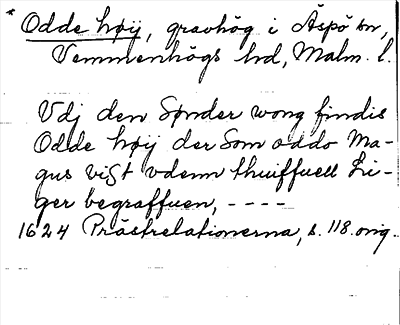 * Odde høÿ, gravhög i Äspö sn,
Vemmenhögs hd, Malm. l.
Vdj den Sønder wong findis
Odde høÿ der Som oddo Ma-
gus vist vdenn thuiffuell Li-
ger begraffuen, ----
1624 Prästrelationerna, s. 118. orig.